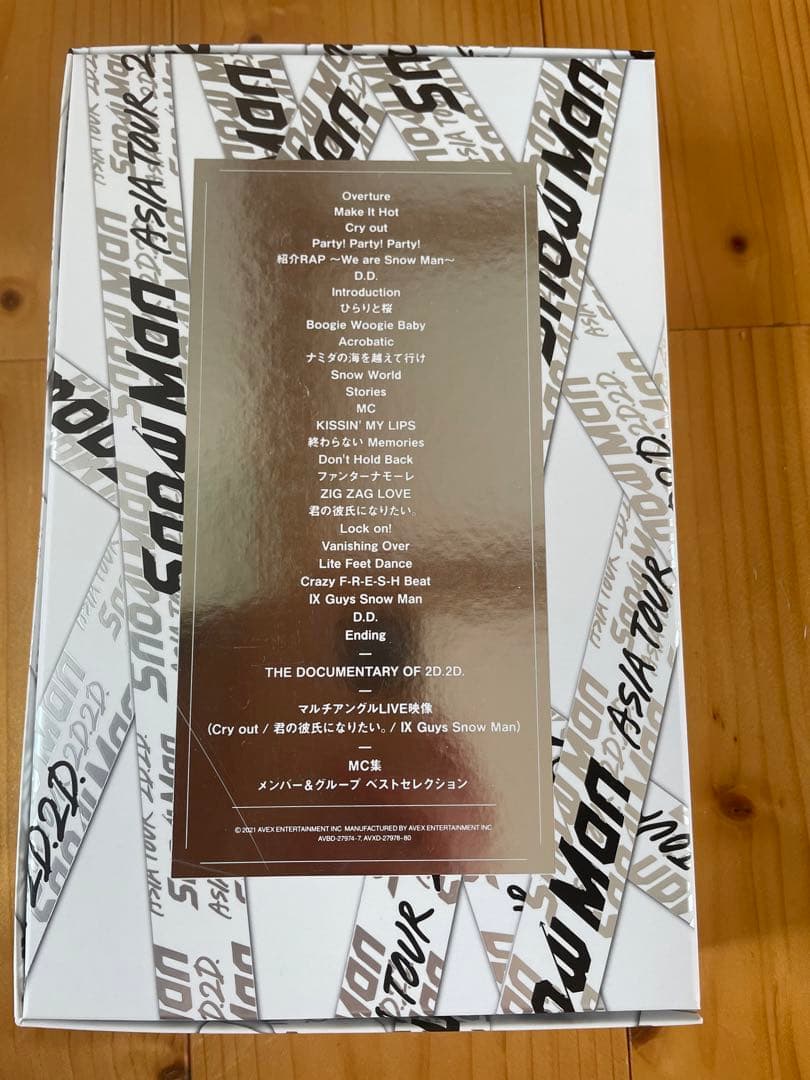 Overture
Make It Hot
Cry out
Party! Party! Party!
紹介RAP 〜We are Snow Man〜
D.D.
Introduction
ひらりと桜
Boogie Woogie Baby
Acrobatic
ナミダの海を越えて行け
Snow World
Stories
MC
KISSIN' MY LIPS
終わらない Memories
Don't Hold Back
ファンターナモーレ
ZIG ZAG LOVE
君の彼氏になりたい。
Lock on!
Vanishing Over
Lite Feet Dance
Crazy F-R-E-S-H Beat
IX Guys Snow Man
D.D.
Ending
—
THE DOCUMENTARY OF 2D.2D.
—
マルチアングルLIVE映像
(Cry out / 君の彼氏になりたい。/ IX Guys Snow Man)
—
MC集
メンバー＆グループ ベストセレクション
© 2021 AVEX ENTERTAINMENT INC MANUFACTURED BY AVEX ENTERTAINMENT INC
AVBD-27974-7, AVXD-27978-80
Snow Man ASIA TOUR 2
Snow Man
Snow Man ASIA TOUR
2D.2D.